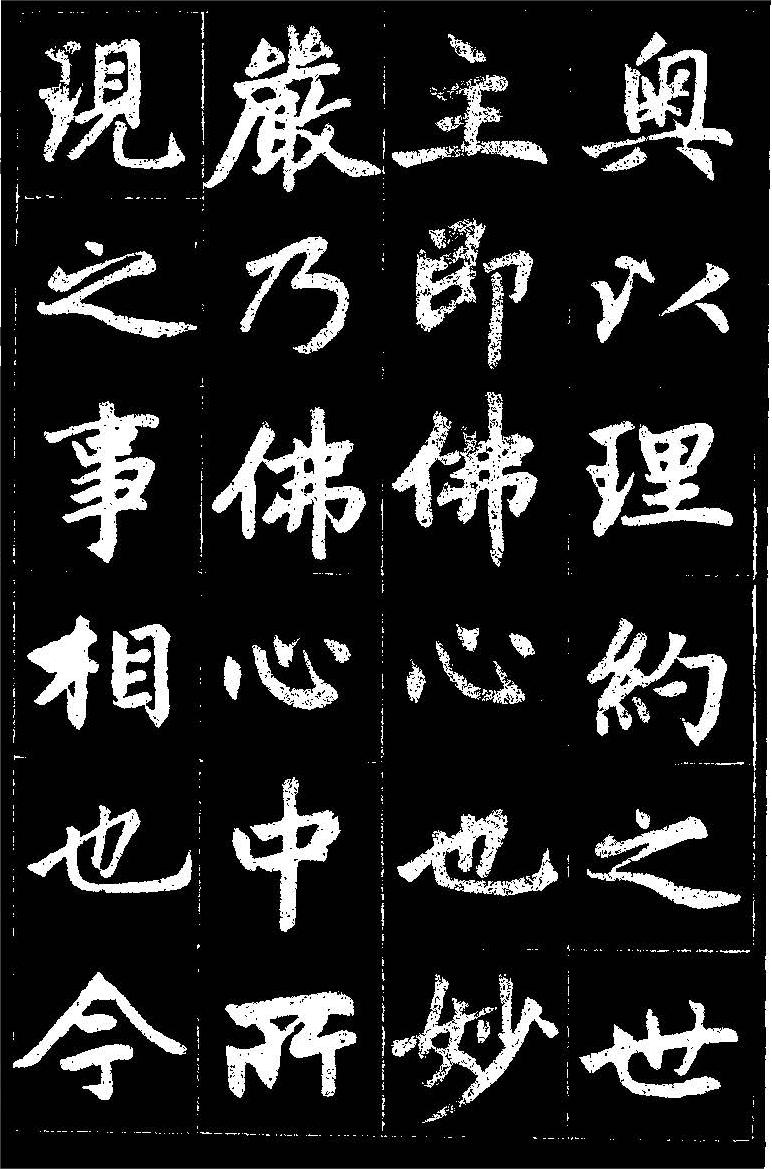 奧以理約之世
主即佛心也妙
嚴乃佛心中所
現之事相也今